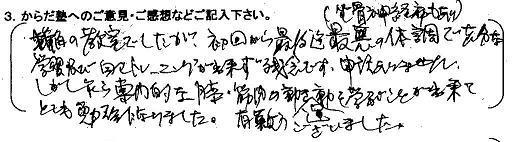 3. からだ塾へのご意見・ご感想などご記入下さい。
の教室でしたが、初回から最後迄最悪の体調で充分な
学習及び自宅トレーニングが出来ず残念です。申訳ありません。
しかし乍ら専門的な 筋肉の動き 学ぶことが出来て
とても勉強になりました。有難うございました。